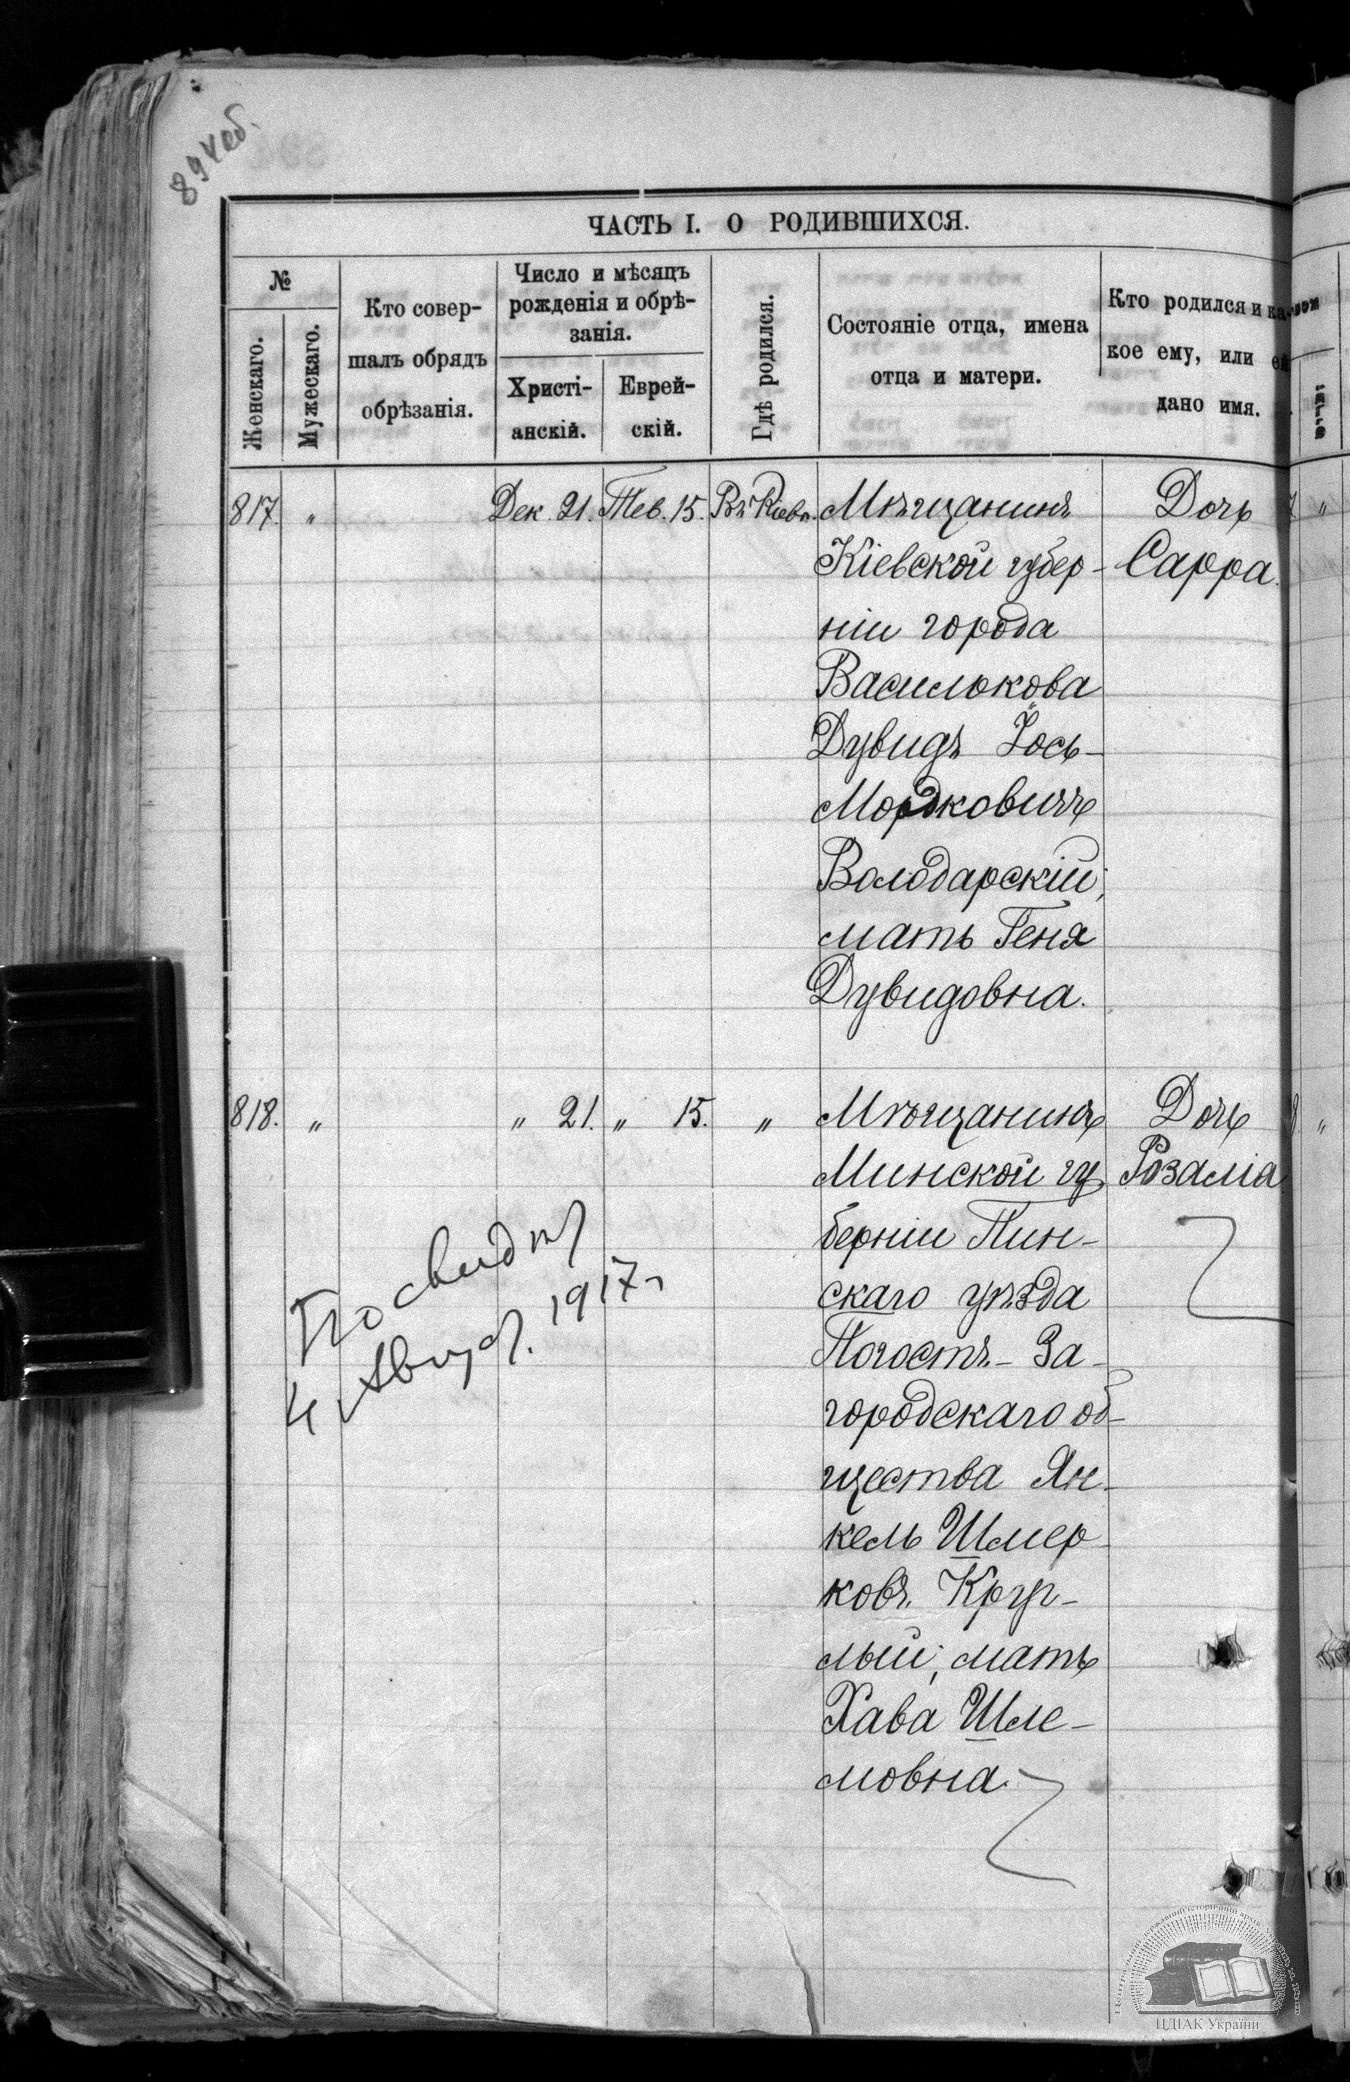 894 об.
ЧАСТЬ I. О РОДИВШИХСЯ.
№
Женскаго.
Мужескаго.
Кто совер-
шалъ обрядъ
обрѣзанія.
Число и мѣсяцъ
рожденія и обрѣ-
занія.
Христі-
анскій.
Еврей-
скій.
Гдѣ родился.
Состояніе отца, имена
отца и матери.
Кто родился и ка-
кое ему, или ей
дано имя.
817. „ Дек. 21. Тев. 15. Въ Кіевѣ. Мѣщанинъ Дочь
Кіевской губер- Сарра.
ніи города
Василькова
Дувидъ Іось-
Мордковичъ
Володарскій;
мать Геня
Дувидовна.
818. „ „ 21. „ 15. „ Мѣщанинъ Дочь
Минской гу Розалія
берніи Пин-
скаго уѣзда
Погостъ-За-
городскаго об-
щества Ян-
кель Шмер-
ковъ Круг-
лый; мать
Хава Шле-
мовна.
По свидѣт
4 Август. 1917 г.
ЦДІАК України